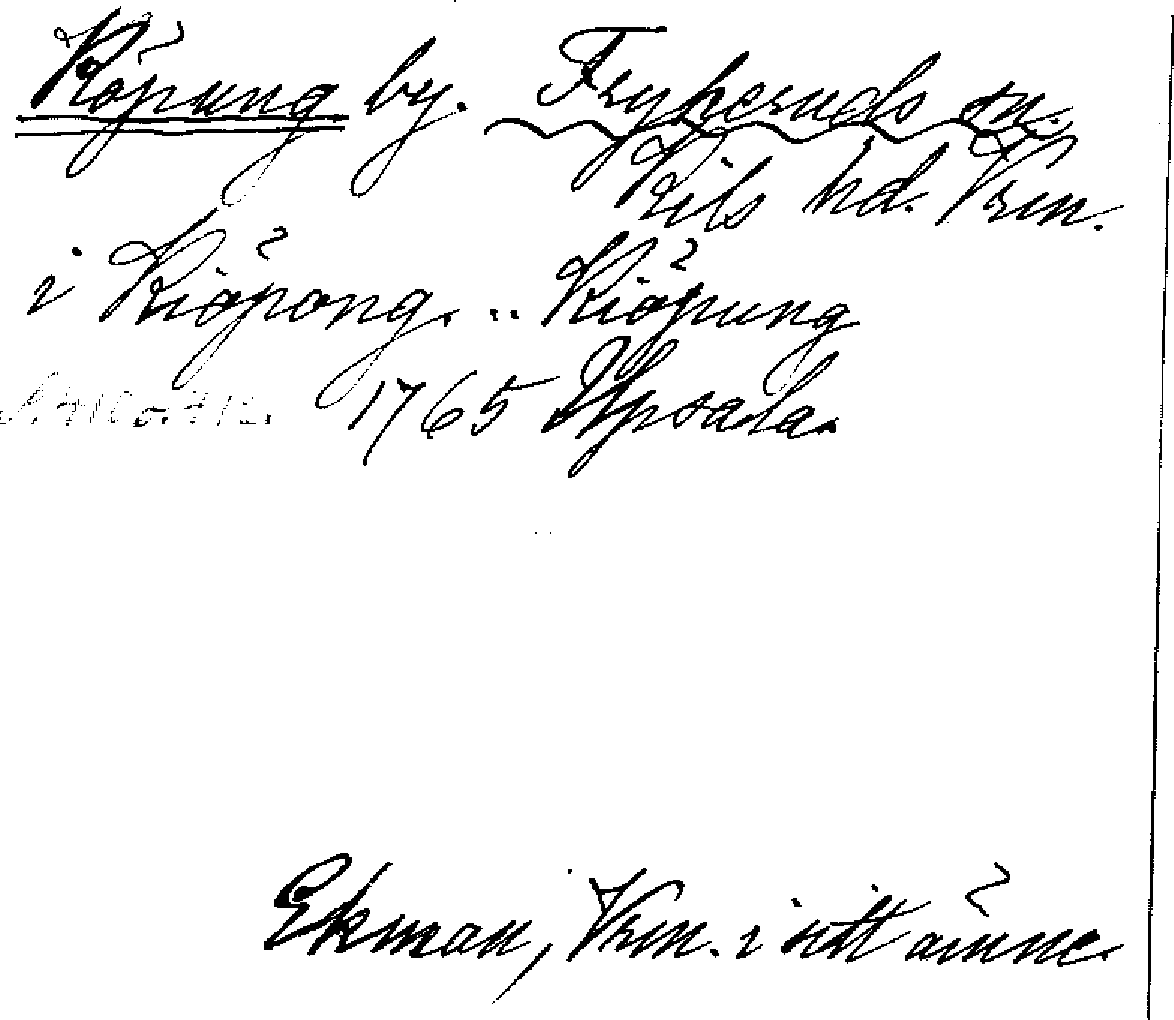 Köpung by. Frykeruds sn.
Kils hd. Vrm.
i Kiöpong. .. Kiöpung
1765 Upsala.
Ekman, Vrm. i sitt ämne.